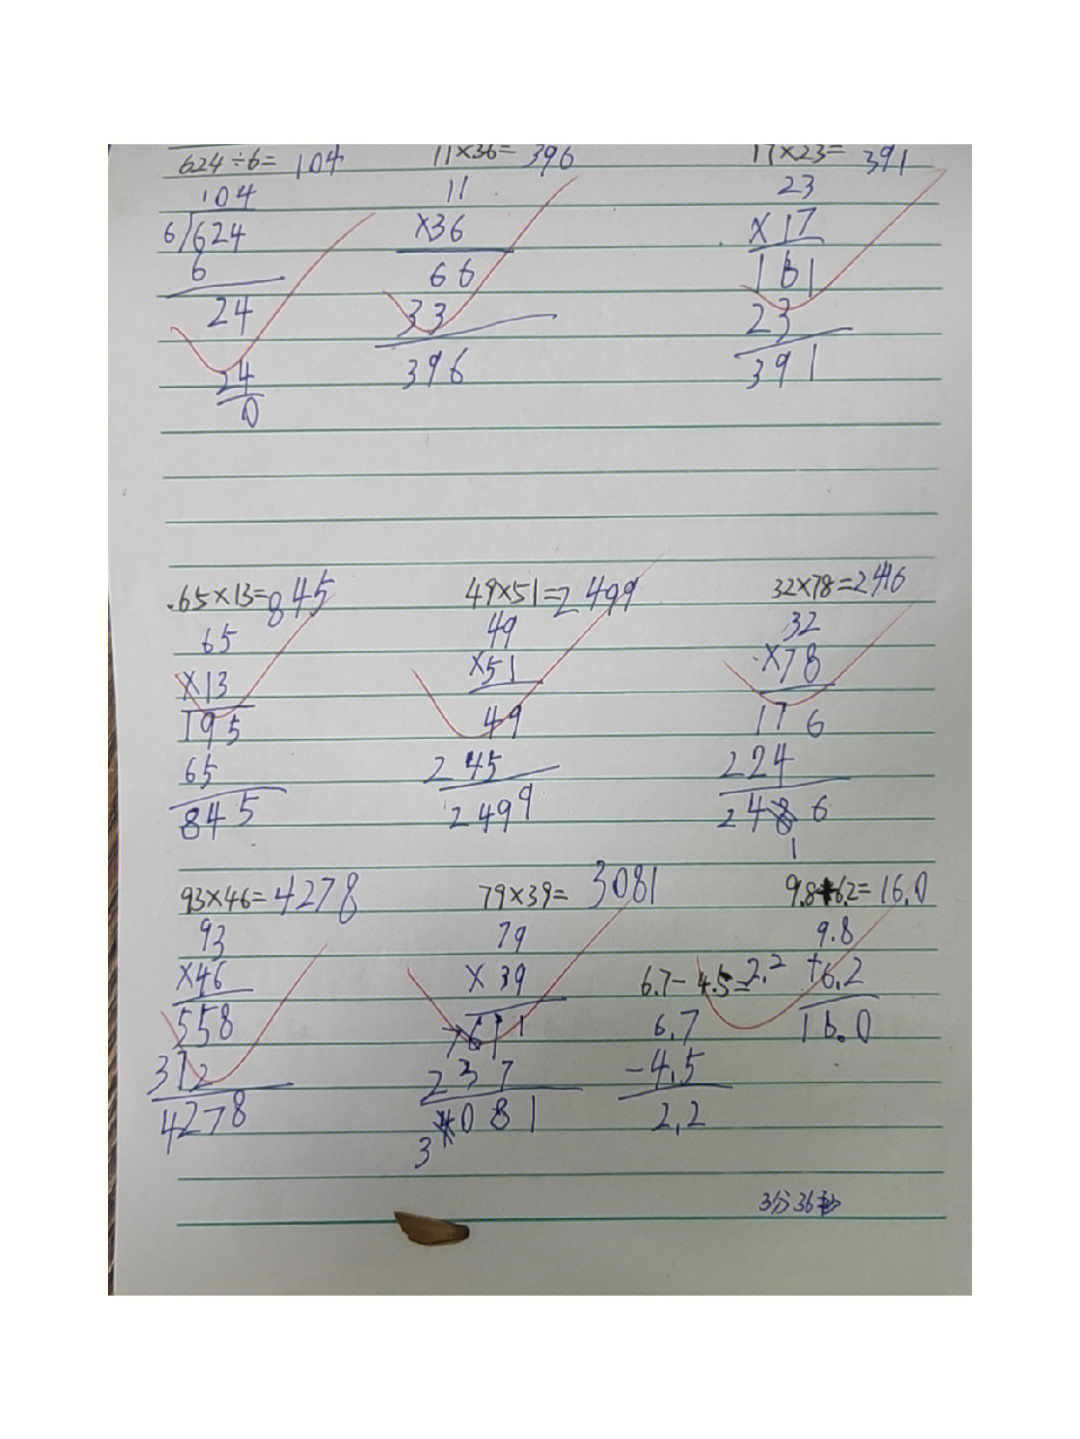 624÷6= 104
104
6/624
6
24
24
0
11×36= 396
11
×36
66
33
396
17×23= 391
23
×17
161
23
391
65×13=845
65
×13
195
65
845
49×51=2499
49
×51
49
245
2499
32×78=2416
32
×78
176
224
24 6
1
93×46=4278
93
×46
558
312
4278
79×39= 3081
79
×39
237
081
3
9.8+6.2=16.0
9.8
+6.2
16.0
6.7-4.5=2.2
6.7
-4.5
2.2
3分36秒